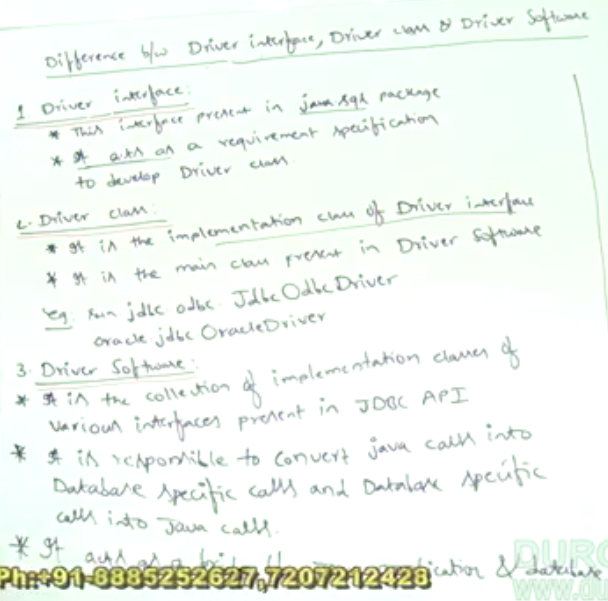 Difference b/w Driver interface, Driver class & Driver Software
1 Driver interface:
* This interface present in java.sql package
* It acts as a requirement specification
to develop Driver class.
2. Driver class:
* It is the implementation class of Driver interface
* It is the main class present in Driver Software
eg: sun.jdbc.odbc.JdbcOdbcDriver
oracle.jdbc.OracleDriver
3. Driver Software:
* It is the collection of implementation classes of
various interfaces present in JDBC API
* It is responsible to convert java calls into
Database specific calls and Database specific
calls into Java calls.
* It acts as a & database
Ph:+91-8885252627,7207212428
DURG
www.du